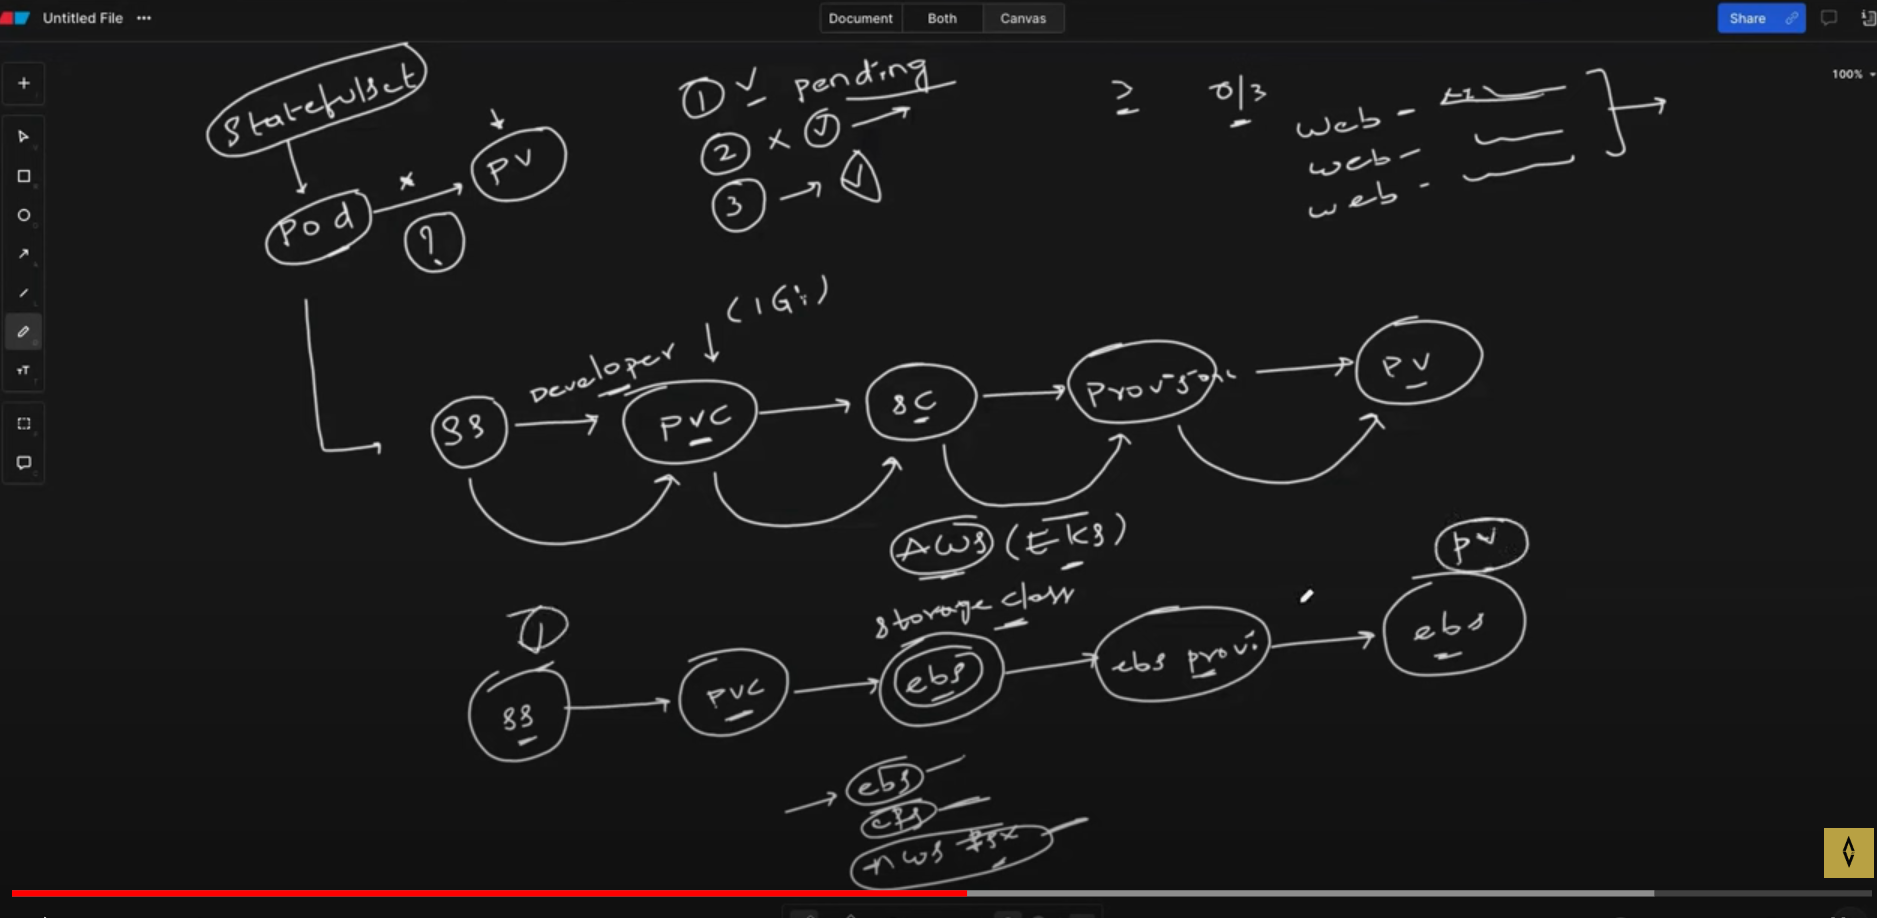 Untitled File
Document
Both
Canvas
Share
100%
Statefulset
Pod
PV
?
1 pending
2
3
0/3
web -
web -
web -
(1Gi)
Developer
SS
PVC
SC
PV
AWS (EKS)
storage class
pv
1
SS
PVC
ebs
ebs provi.
ebs
ebs
efs
aws fsx